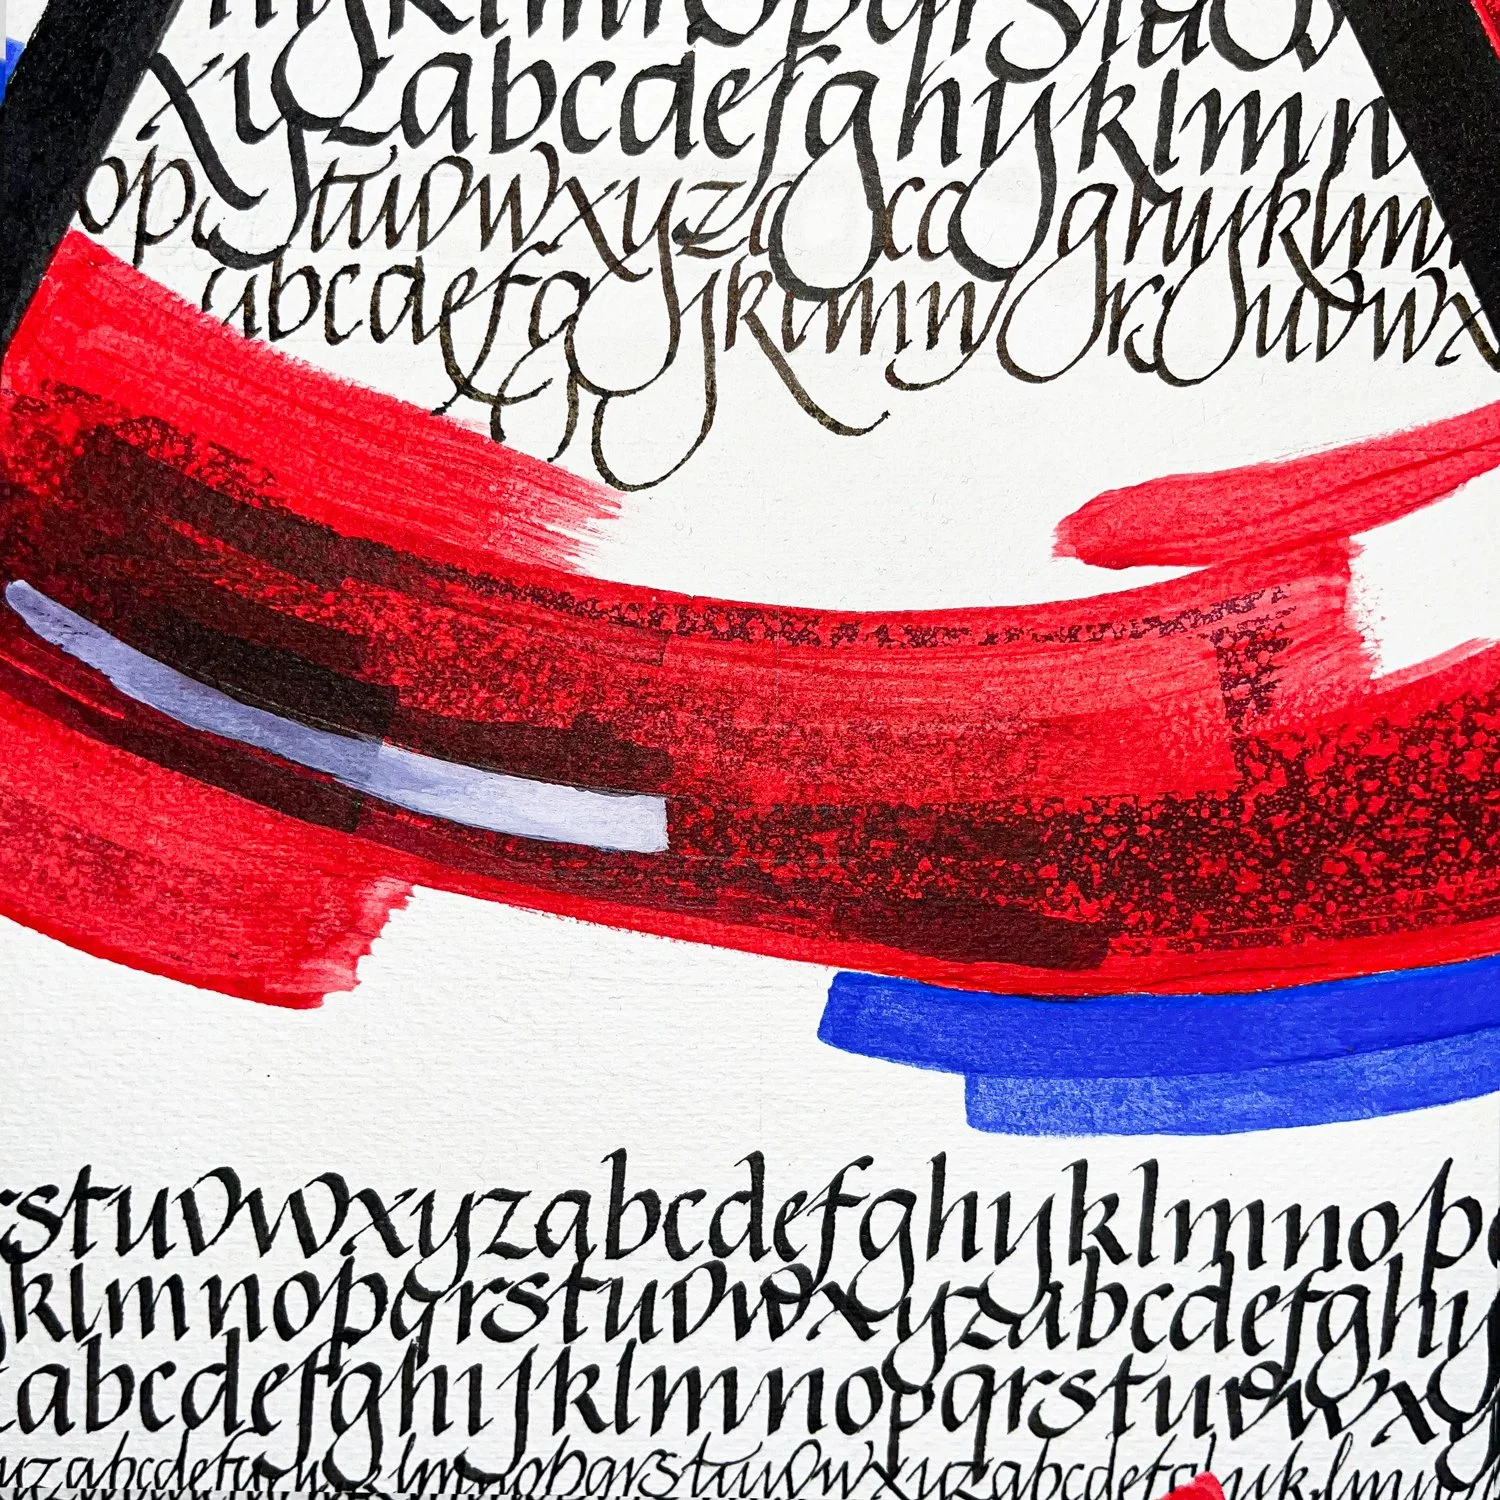 hijklmnopqrstuv
xyzabcdefghijklmn
op stuvwxyza ghijklm
abcdefg jklmn uvwx
rstuvwxyzabcdefghijklmnop
klmnopqrstuvwxyzabcdefghij
abcdefghijklmnopqrstuvwxy
yzabcdefg lmnopqrstuvwxyzabcdefghijklmno